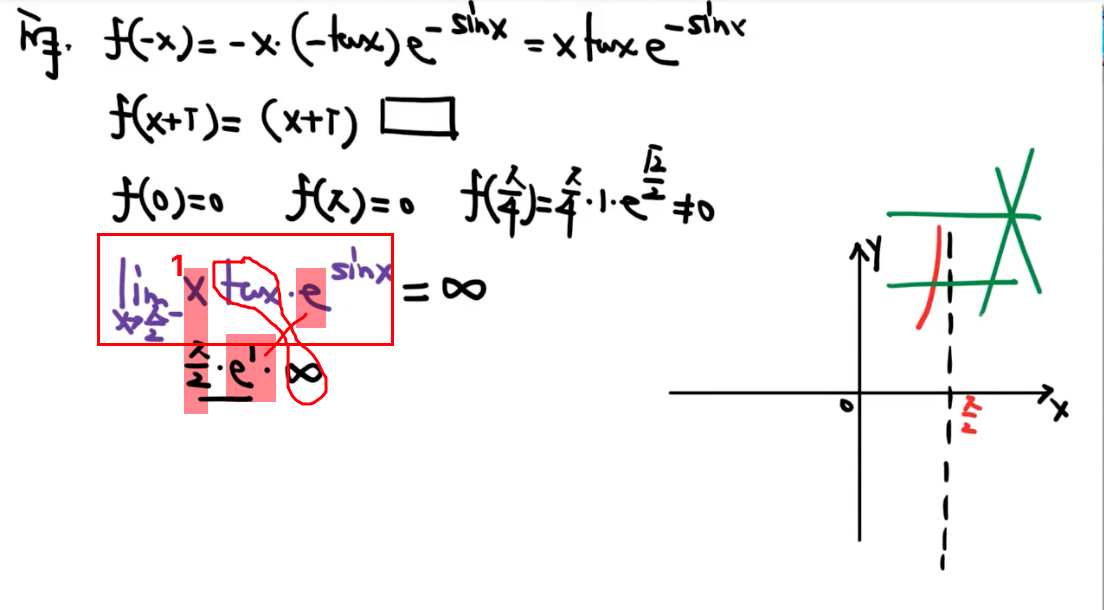 f(-x)=-x·(-tanx)e^{-sinx}=xtanxe^{-sinx}
f(x+T)=(x+T)□
f(0)=0 f(π)=0 f(π/4)=π/4·1·e^{√2/2}≠0
1
lim_{x→π/2^-} x tanx·e^{sinx}=∞
π/2·e^1·∞
Y
0
π/2
X